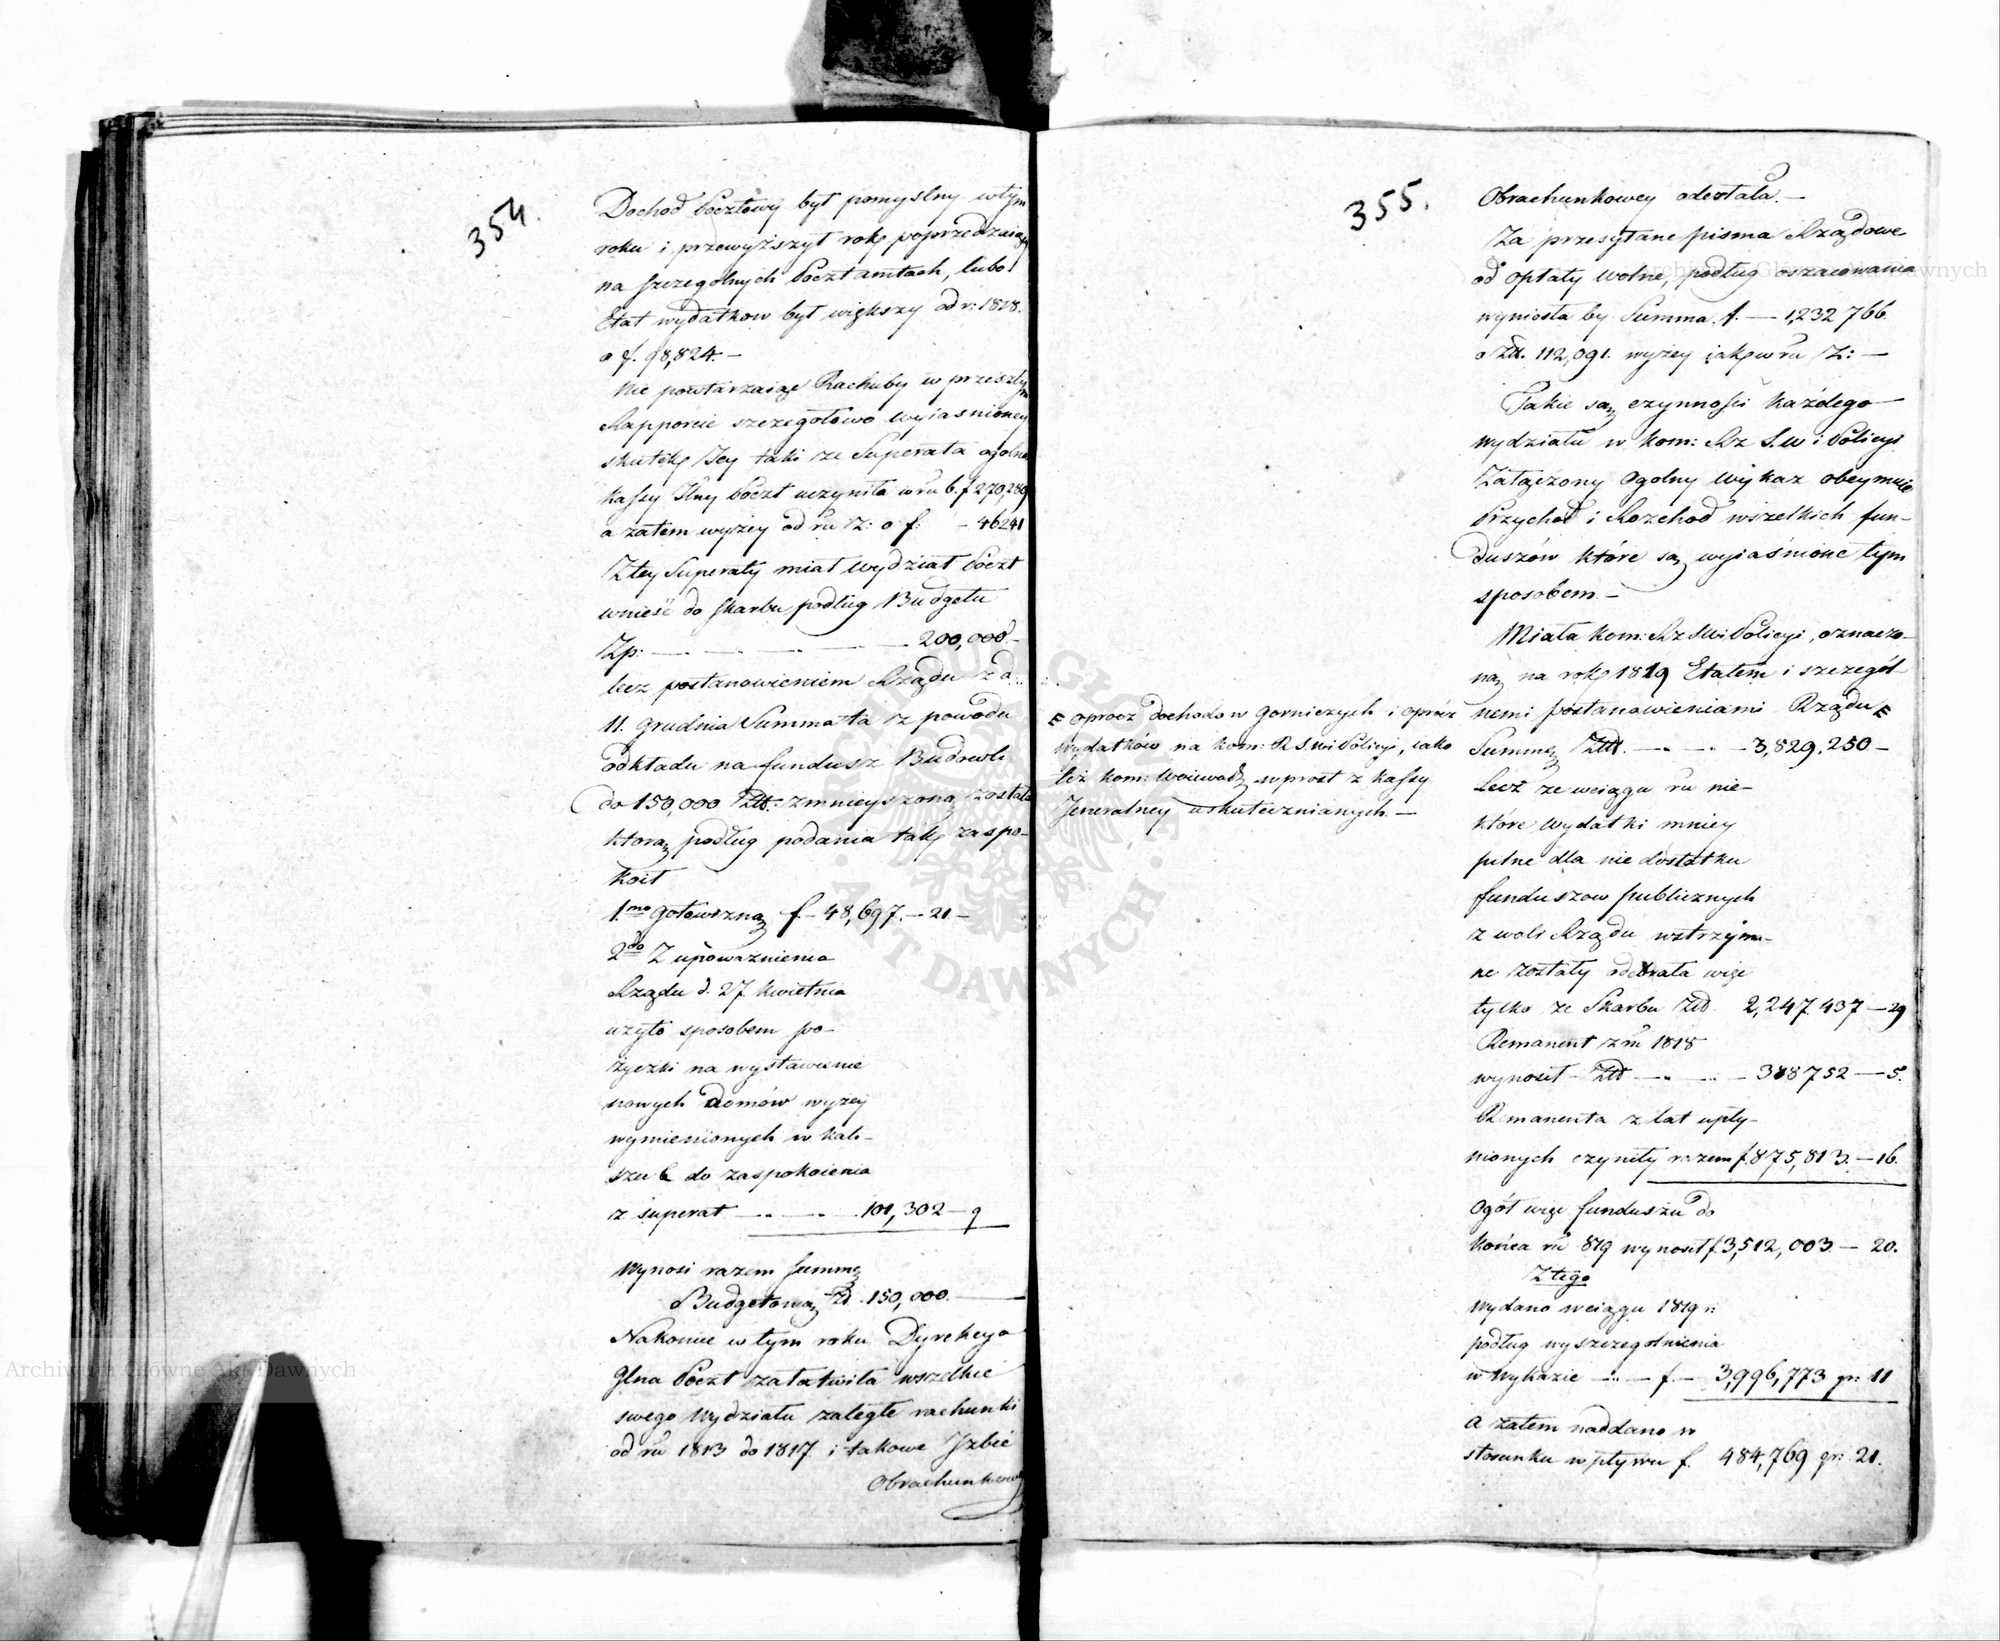 354.
Dochod Pocztowy był pomyslny wtym
roku i przewyższył rok poprzedzaiący
na szczegolnych Pocztamtach, lubo
Etat wydatkow był większy od r: 1818.
o f. 98,824.—
Nie powtarzaiąc Rachuby w przeszłym
Rapporcie szczegołowo wyiasnioney
skutek Jey taki ze Superata ogolna
kassy Jlney Poczt uczyniła w ru b. f 270,289
a zatem wyżey od ru z: o f: — 46241
Z tey Superaty miał Wydział Poczt
wnieść do skarbu podług Budgetu
Zp: — — — — 200,000.—
lecz postanowieniem Rządu z d:
11. Grudnia Summa ta z powodu
odkładu na fundusz Budowli
do 150,000 Złt: zmnieyszoną została
ktorą podług podania tak zaspo-
koił
1mo gotowizną f.— 48,697.—21—
2do Z upoważnienia
Rządu d. 27 Kwietnia
użyto sposobem po-
życzki na wystawienie
nowych domów wyżey
wymienionych w Kali-
szu do zaspokoienia
z superat — — — 101,302—9
Wynosi razem summę
Budgetową Zł. 150,000.—
Nakoniec w tym roku Dyrekcya
Glna Poczt załatwiła wszelkie
swego Wydziału zaległe rachunki
od ru 1813 do 1817 i takowe Jzbie
Obrachunkowey
355.
Obrachunkowey odesłała.—
Za przesyłane pisma Rządowe
od opłaty wolne, podług oszacowania
wyniosła by Summa f. — 1,232 766
o Złt. 112,091. wyżey iak w ru z: —
Takie są czynności każdego
wydziału w Kom: Rz S. w i Policyi
Załączony Ogolny Wykaz obeymuie
Przychod i Rozchod wszelkich fun-
duszów które są wyiaśnione tym
sposobem.—
Miała Kom: Rz S W i Policyi, oznaczo-
ną na rok 1819 Etatem i szczegól-
nemi postanowieniami Rządu
oprocz dochodow Gorniczych i oprócz
wydatków na Kom: R S. W i Policyi, iako
też Kom: Woiewodz wprost z kassy
Jeneralney uskutecznianych.—
Summę Złt. — — — 3,829,250—
Lecz ze wciągu ru nie-
które Wydatki mniey
pilne dla nie dostatku
funduszow publicznych
z woli Rządu wstrzyma-
ne zostały odebrała więc
tylko ze Skarbu Złt. 2,247 437—29
Remanent z ru 1818
wynosił Złt — — — 388 752—5.
Remanenta z lat upły-
nionych czyniły razem f. 875,813.—16.
Ogół więc funduszu do
końca ru 819 wynosił f. 3,512,003.— 20.
Z tego
wydano wciągu 1819 r:
podług wyszczegolnienia
w Wykazie — — f.— 3,996,773 gr: 11
a zatem naddano w
stosunku wpływu f. 484,769 gr: 21.
Archiwum Główne Akt Dawnych
Archiwum Główne Akt Dawnych
ARCHIWUM GŁÓWNE
AKT DAWNYCH